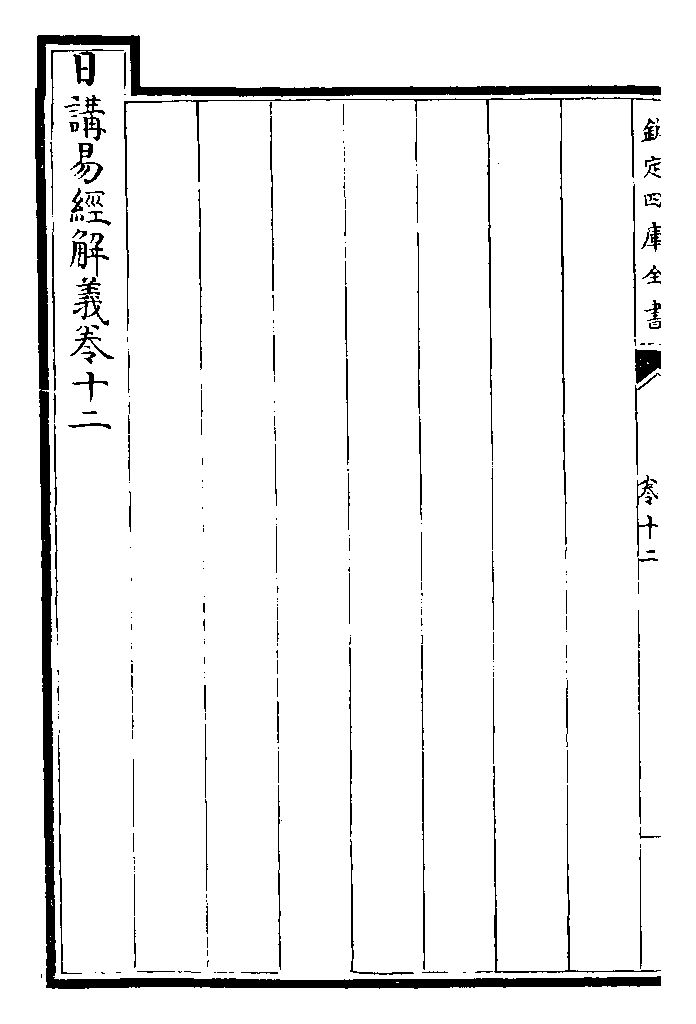 欽定四庫全書
卷十二
日講易經解義卷十二